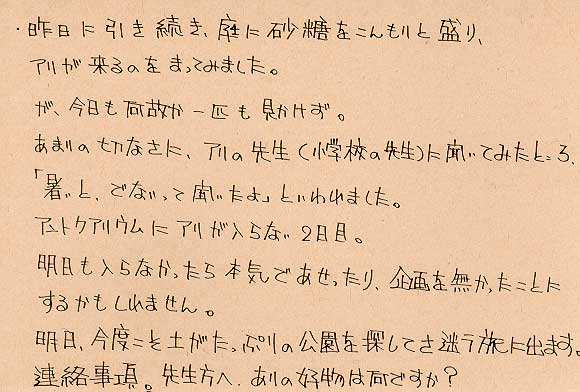 ・昨日に引き続き、庭に砂糖をこんもりと盛り、
アリが来るのをまってみました。
が、今日も何故か一匹も見かけず。
あまりの切なさに、アリの先生(小学校の先生)に聞いてみたところ、
「暑いと、でないって聞いたよ」といわれました。
アントクアリウムにアリが入らない2日目。
明日も入らなかったら本気であせったり、企画を無かったことに
するかもしれません。
明日、今度こそ土がたっぷりの公園を探してさ迷う旅に出ます。
連絡事項。先生方へ、ありの好物は何ですか?